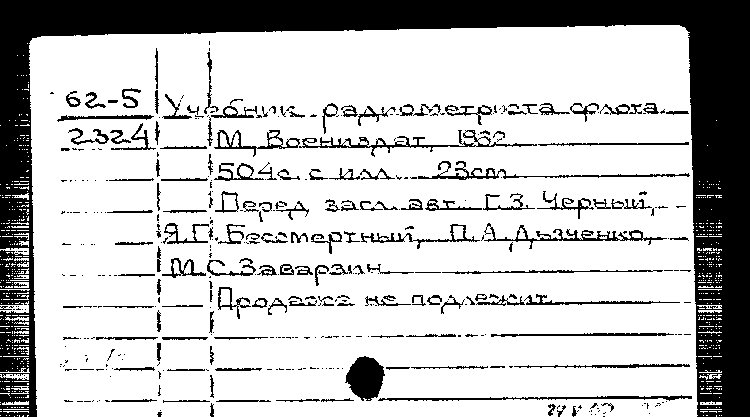 62-5 Учебник радиометриста флота.
2324 М., Воениздат, 1962
504с. с илл. 23cm.
Перед загл. авт. Г.З. Черный,
Я.П. Бессмертный, П.А. Дьяченко,
М.С. Заварзин
Продаже не подлежит